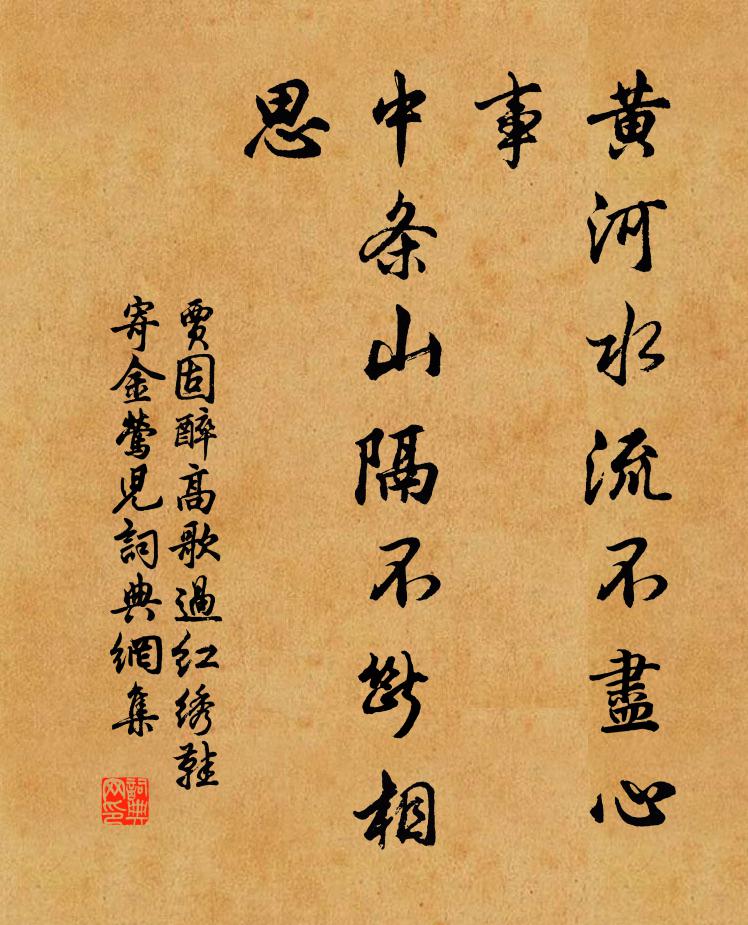 黄河水流不盡心
事
中条山隔不斷相
思
賈固醉高歌過红绣鞋
寄金鶯兒詞典網集
詞典
网印